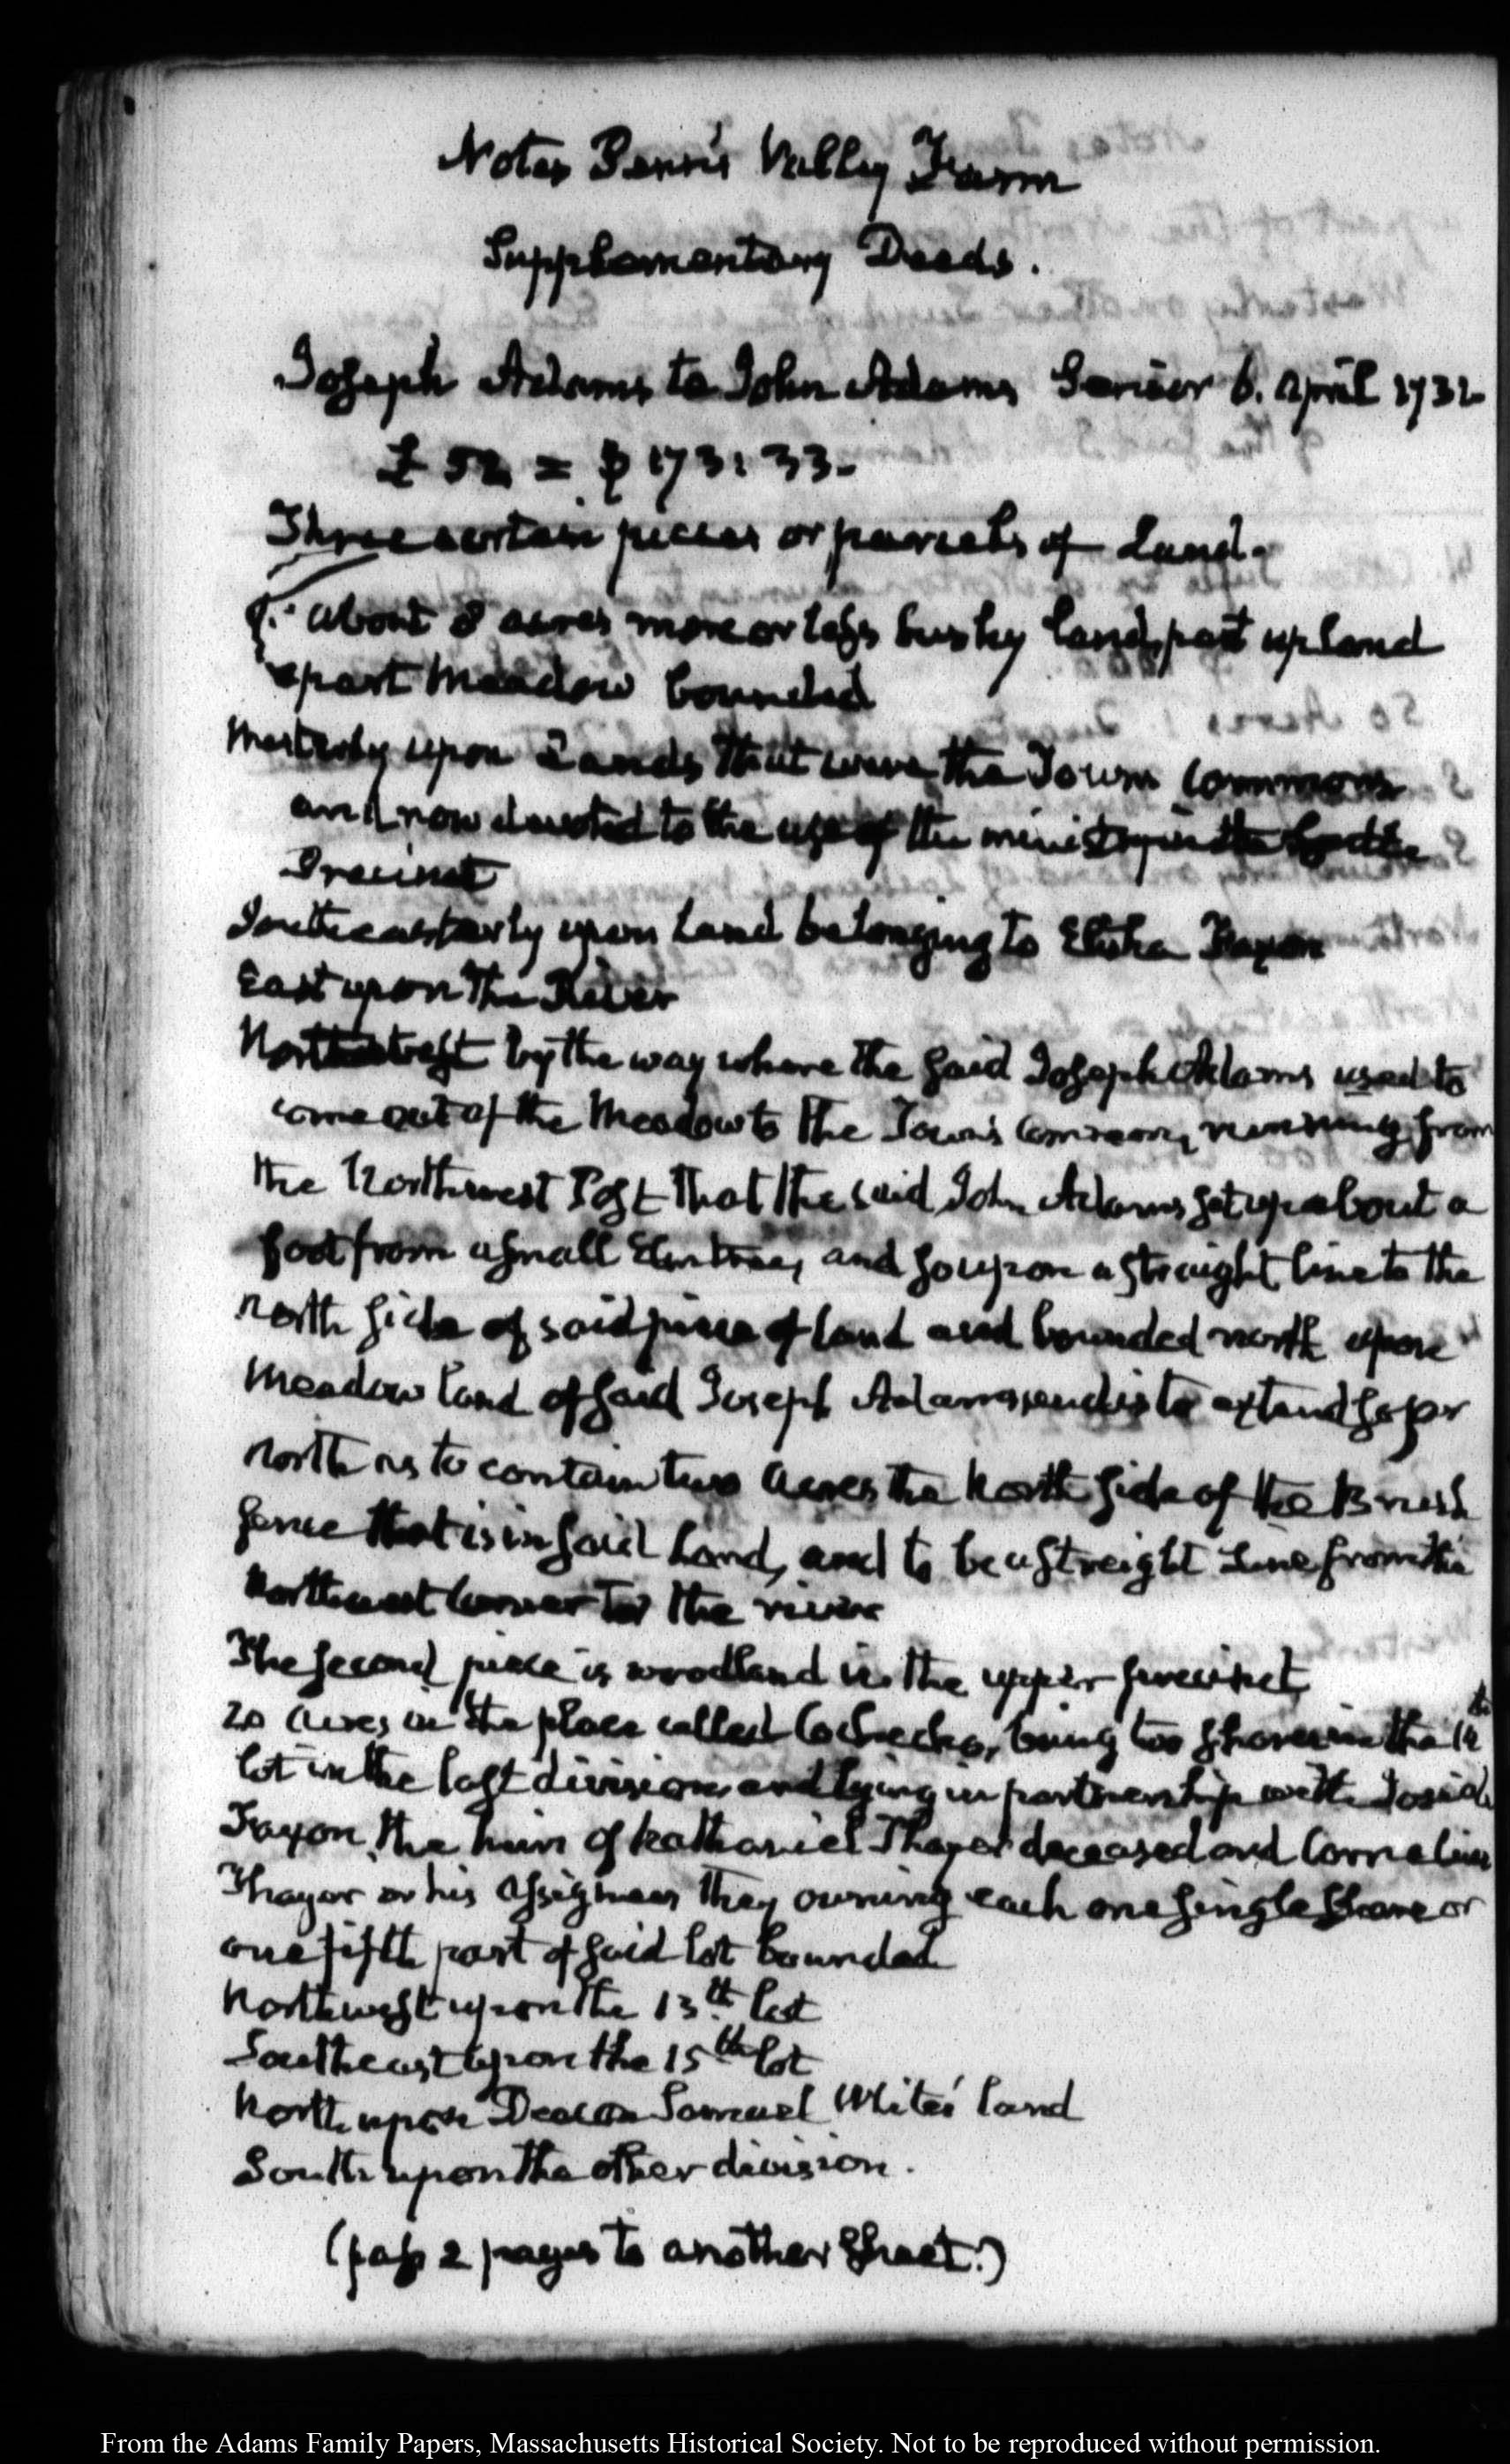 Notes Penn's Valley Farm
Supplementary Deeds.
Joseph Adams to John Adams Senior 6. April 1732
£ 52 = $ 173:33-
Three certain pieces or parcels of Land.
1. about 8 acres more or less bushy land, part upland
part Meadow bounded
Westerly upon Lands that were the Town Commons
and now devoted to the use of the ministry in the South
Precinct
Southeasterly upon land belonging to Elisha Faxon
East upon the River
Northwest by the way where the said Joseph Adams used to
come out of the Meadow to the Town's Common, running from
the Northwest Post that the said John Adams set up about a
foot from a small Elm tree, and so upon a straight line to the
north side of said piece of land and bounded north upon
Meadow land of said Joseph Adams, and is to extend so far
north as to contain two acres the North side of the Brush
fence that is in said Land, and to be a Streight Line from the
Northwest corner to the river
The second piece is woodland in the upper precinct
20 acres in the place called Cochecho, being two shares in the 14th
lot in the last division and lying in partnership with Josiah
Faxon, the heirs of Nathaniel Thayer deceased and Cornelius
Thayer or his Assignees they owning each one single Share or
one fifth part of said lot bounded
Northwest upon the 13th. lot
Southeast upon the 15th lot
North upon Deacon Samuel White's land
South upon the other division.
(pass 2 pages to another Sheet.)
From the Adams Family Papers, Massachusetts Historical Society. Not to be reproduced without permission.